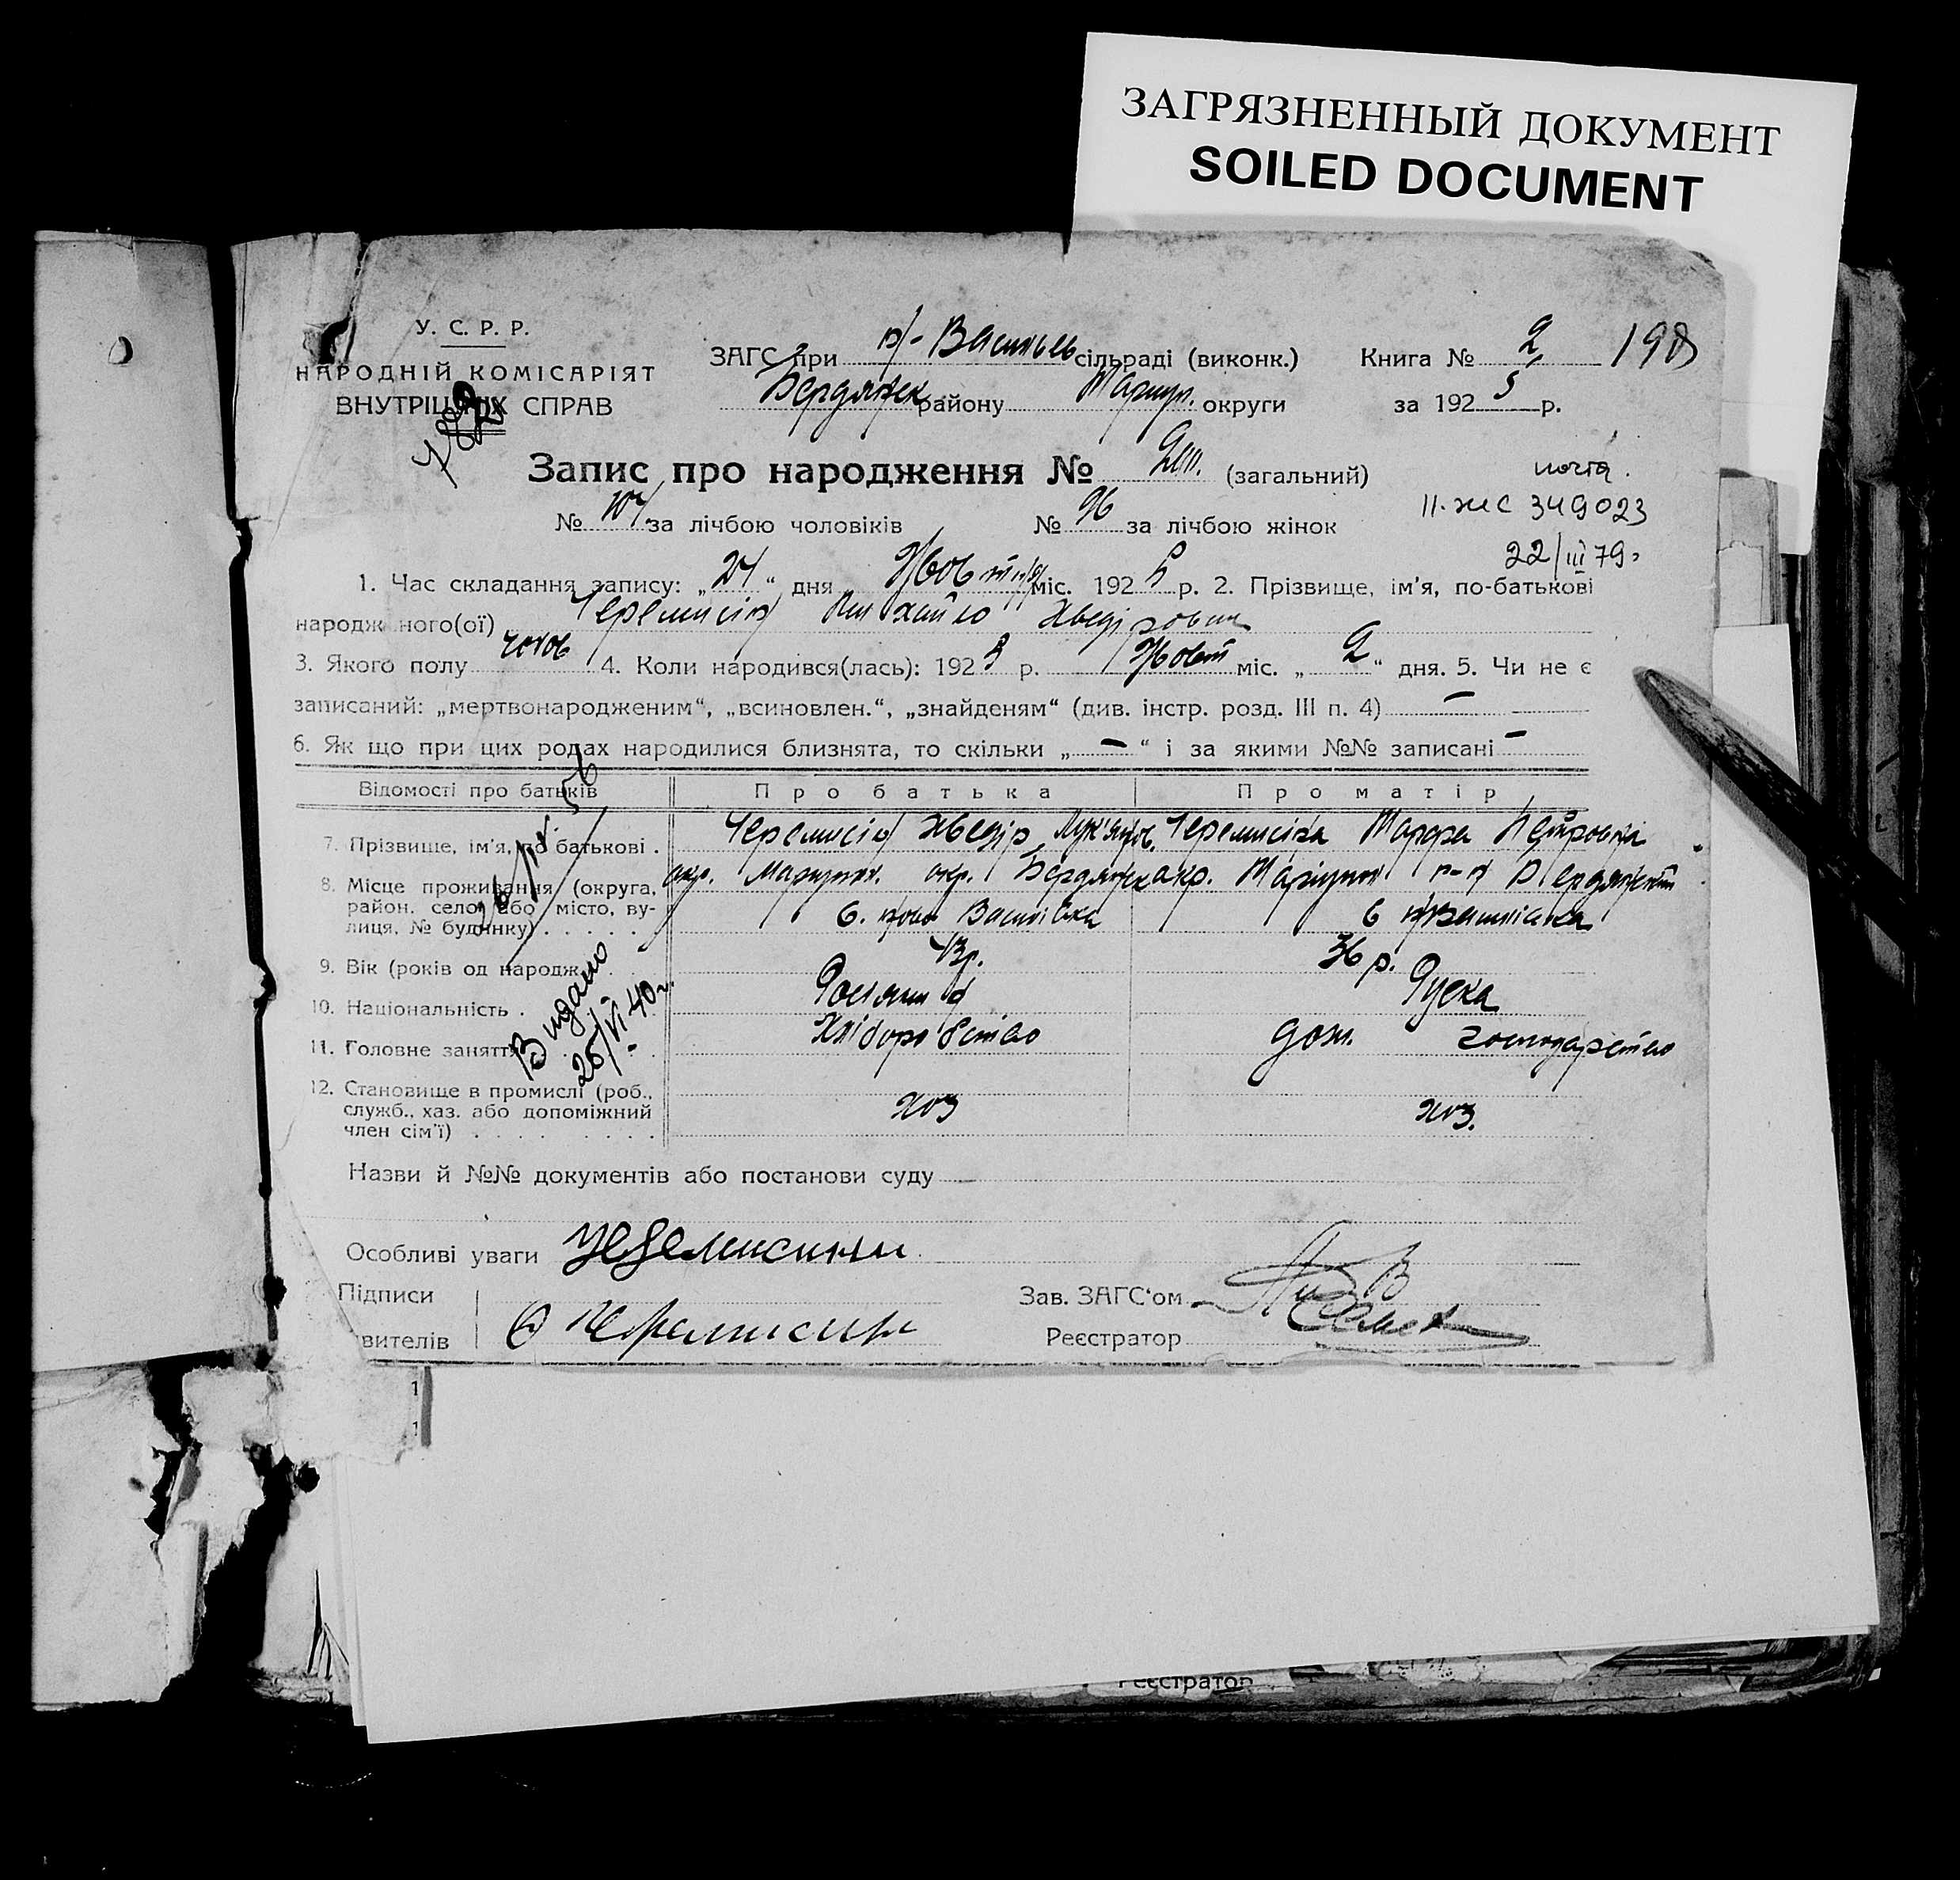 ЗАГРЯЗНЕННЫЙ ДОКУМЕНТ
SOILED DOCUMENT
У. С. Р. Р.
НАРОДНІЙ КОМІСАРІЯТ
ВНУТРІШНІХ СПРАВ
ЗАГС при Васильев сільраді (виконк.) Книга № 2
Бердянск району Маріуп. округи за 1925 р.
Запис про народження № (загальний)
почта.
№ за лічбою чоловіків № 96 за лічбою жінок
II-ЖС 349023
22/III 79
1. Час складання запису: „ “ дня Жовтня міс. 1925 р. 2. Прізвище, ім’я, по-батькові
народженого(ої) Черемисін Михайло Хведірович
3. Якого полу чолов 4. Коли народився(лась): 1925 р. Жовт міс. „ 2 “ дня. 5. Чи не є
записаний: „мертвонародженим“, „всиновлен.“, „знайденям“ (див. інстр. розд. III п. 4) —
6. Як що при цих родах народилися близнята, то скільки „ — “ і за якими №№ записані —
Відомості про батьків Про батька Про матір
7. Прізвище, ім’я, по батькові . Черемисін Хведір Лук’янов. Черемисіна Марфа Петровна
8. Місце проживання (округа, окр. Маріупол. Бердянск окр. Маріупол р-н Бердянский
район, село або місто, ву- с. ново Василівка с Василівка
лиця, № будинку) . . . . .
9. Вік (років од народж. 43р. 36 р.
10. Національність . Росіянин Руска
11. Головне заняття Хліборобство дом. господарство
12. Становище в промислі (роб., хоз хоз.
служб., хаз. або допоміжний
член сім’ї) . . . . . . . .
Видано
26/VI 40 г.
Назви й №№ документів або постанови суду
Особливі уваги Черемисин
Підписи Зав. ЗАГС‘ом
вителів Ф Черемисин Реєстратор
Реєстратор